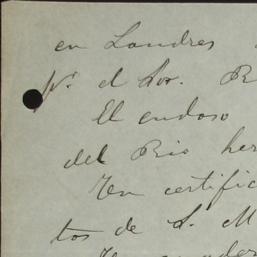 en Londres
el Sor. R
El endoso
del Rio her
Ten certific
tos de S. M